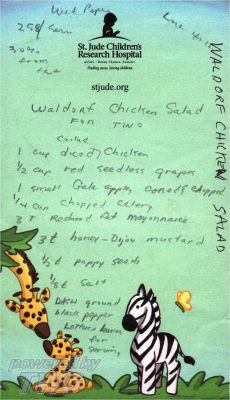 258/serv
3.0g
from
fat
St. Jude Children's
Research Hospital
Finding cures. Saving children.
stjude.org
WALDORF CHICKEN SALAD
Waldorf Chicken Salad
FOR TWO
1 cup diced Chicken
1/2 cup red seedless grapes
1 small Gala apple, cored chopped
1/4 cup chopped celery
3 T Reduced fat mayonnaise
3t honey-Dijon mustard
poppy seeds
salt
ground
black pepper
Lettuce leaves
for
serving
powered by